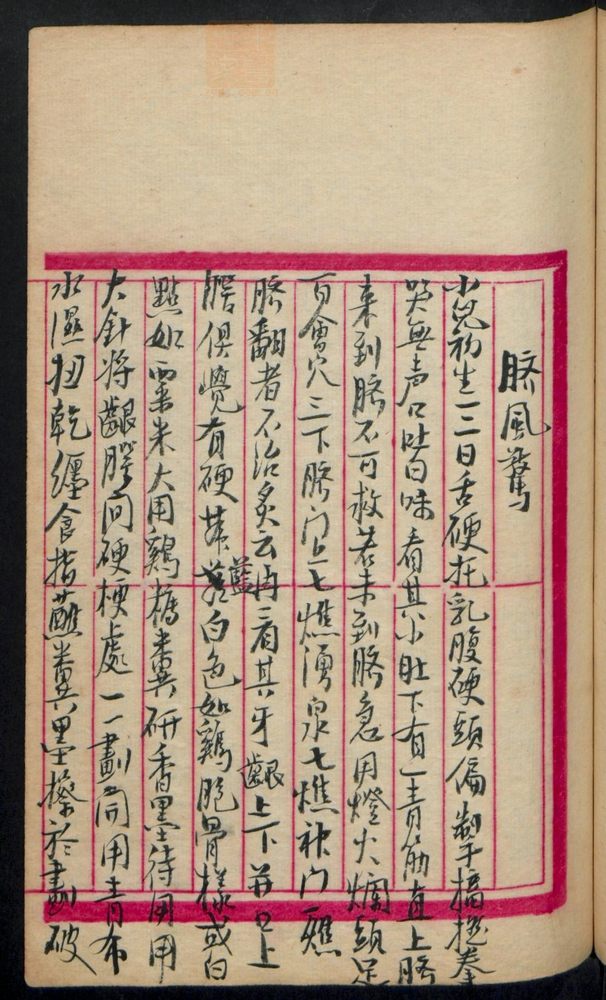 臍風驚
小兒初生一二日舌硬在乳腹硬頭偏制手搐撓拳
哭無声口吐白味看其小肚下有一青筋直上臍
来到臍不可救若未到臍急用燈火爛頭足
百會穴三下臍门上七燋湧泉七燋神门一燋
臍翻者不治灸云内三看其牙齦上下并口上
腭俱覺有硬帶藍白色如鷄脆骨樣或白
點如粟米大用鷄糞研香墨待用用
大針将齦腭间硬梗處一一劃间用青布
水濕扭乾纏食指蘸糞墨擦於劃破